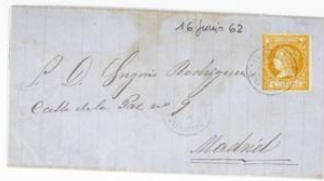 16 junio 62
S. D. Rodriguez
Calle de la Paz nº 9
Madrid